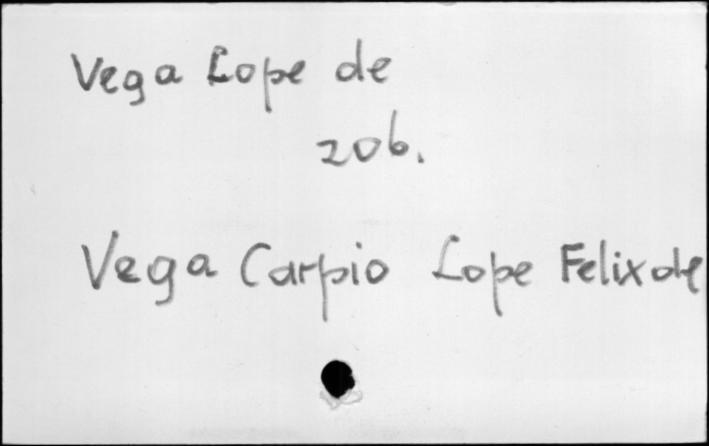 Vega Lope de
zob.
Vega Carpio Lope Felix de